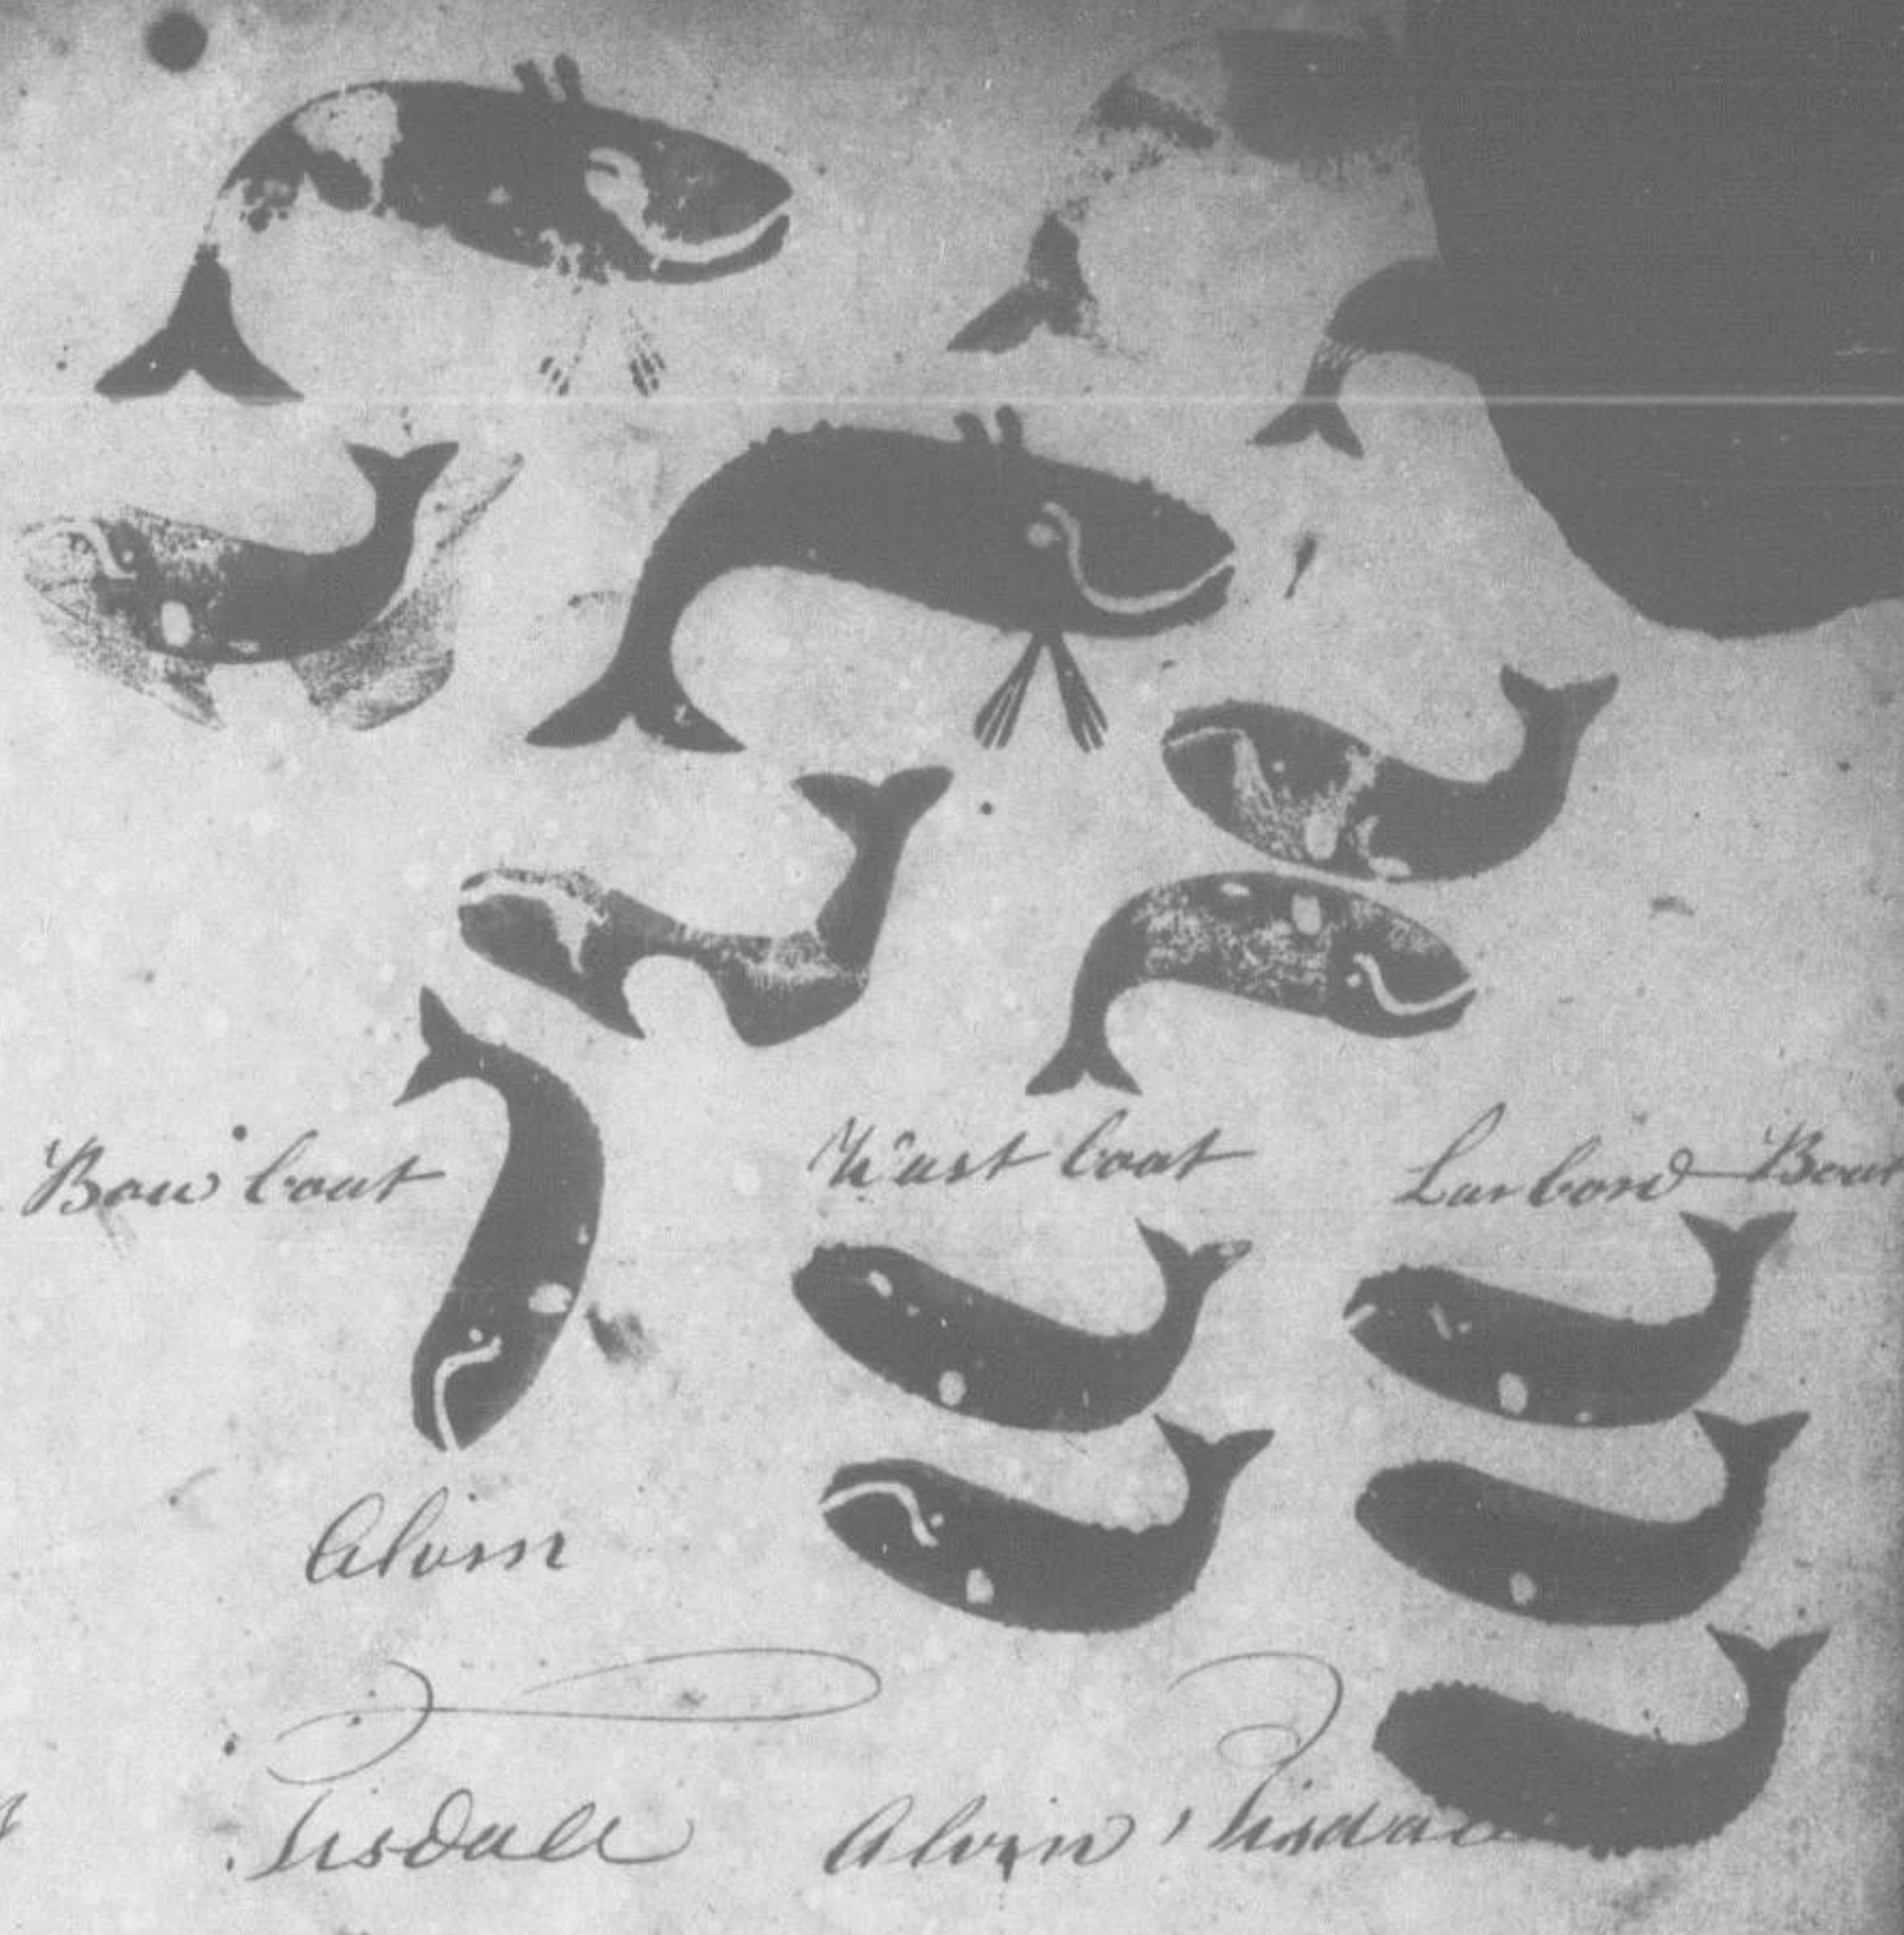 Bow boat Wast boat Larbord Boat
Alvin
Tisdale Alvin Tisdale